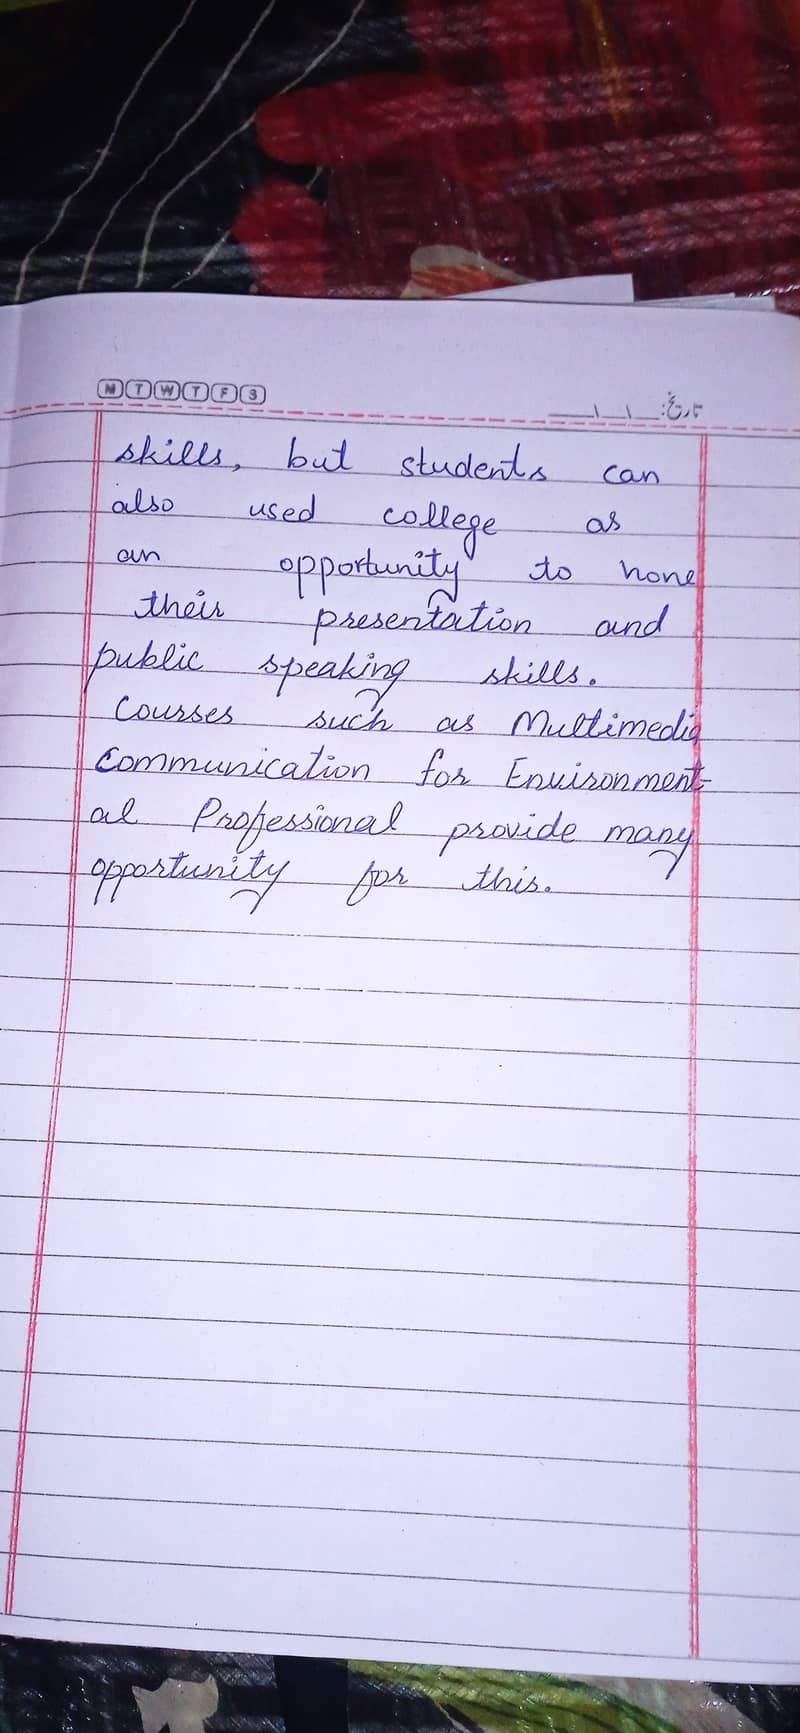 M T W T F S
تاریخ:
skills, but students can
also used college as
an opportunity to hone
their presentation and
public speaking skills.
Courses such as Multimedia
Communication for Environment-
al Professional provide many
opportunity for this.